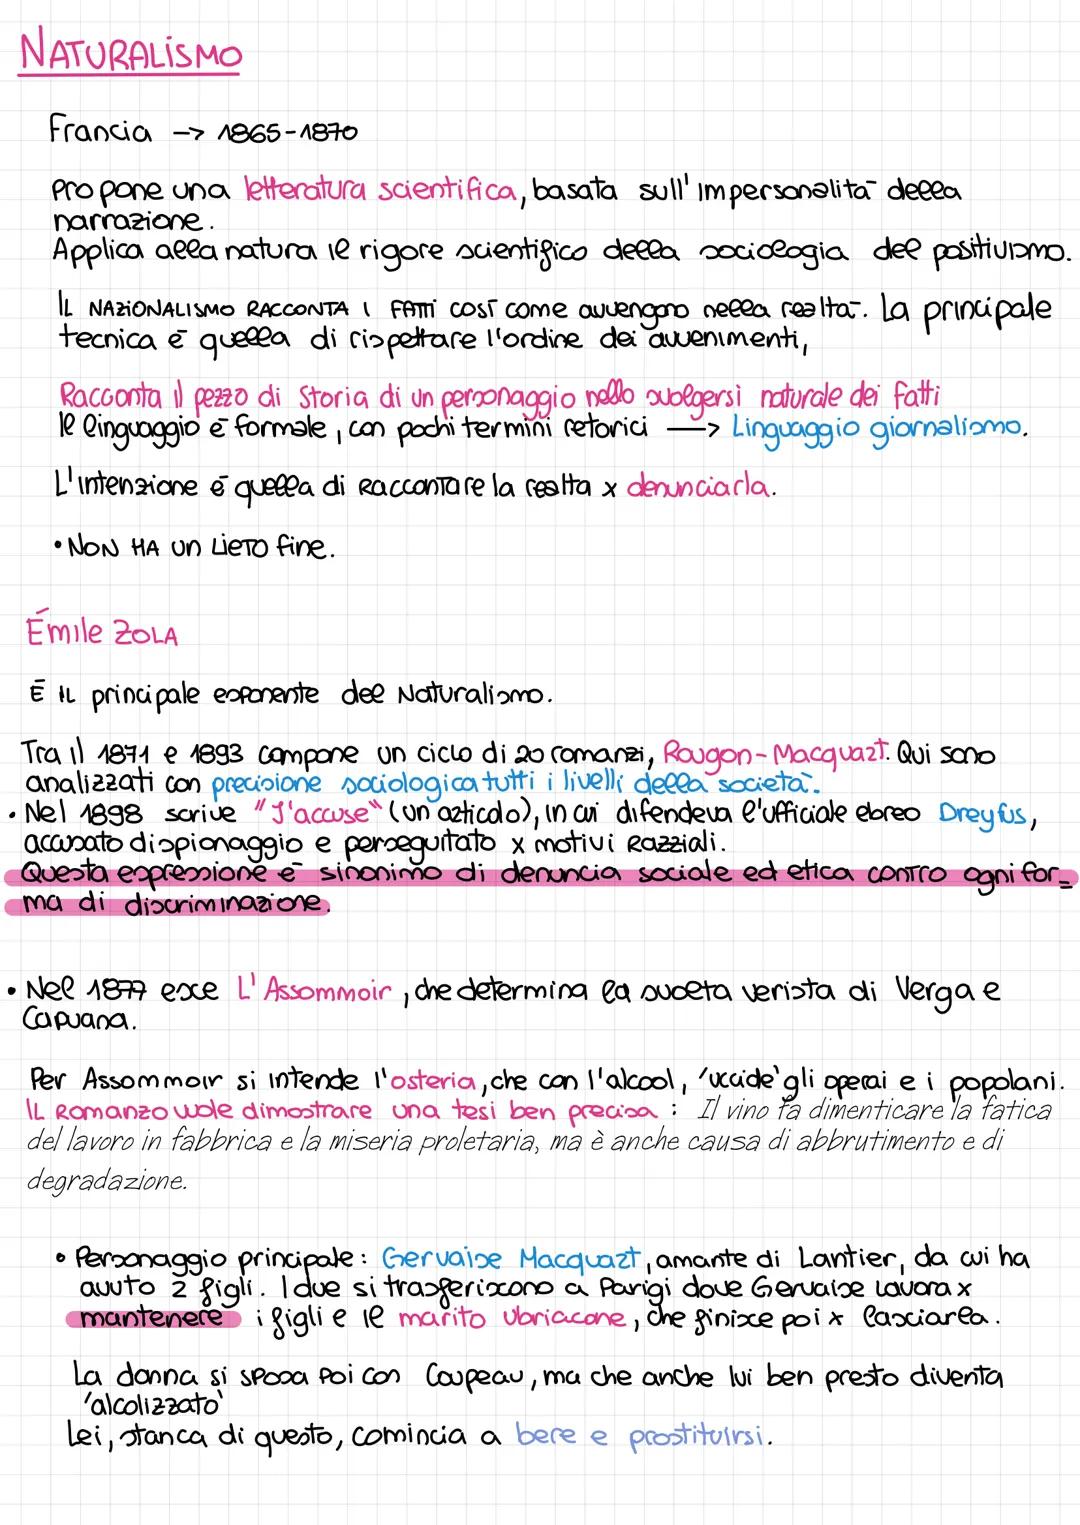 NATURALISMO
Francia -> 1865-1870
Propone una letteratura scientifica, basata sull'impersonalità della
narrazione.
Applica alla natura il rigore scientifico della sociologia del positivismo.
IL NAZIONALISMO RACCONTA I FATTI così come avvengono nella realtà. La principale
tecnica è quella di rispettare l'ordine dei avvenimenti,
Racconta il pezzo di Storia di un personaggio nello svolgersi naturale dei fatti
Il linguaggio è formale, con pochi termini retorici —> Linguaggio giornalismo.
L'intenzione è quella di Raccontare la realtà x denunciarla.
• NON HA UN LIETO fine.
Émile ZOLA
È IL principale esponente del Naturalismo.
Tra il 1871 e 1893 compone un ciclo di 20 romanzi, Rougon-Macquart. Qui sono
analizzati con precisione sociologica tutti i livelli della società.
• Nel 1898 scrive "J'accuse" (un articolo), in cui difendeva l'ufficiale ebreo Dreyfus,
accusato di spionaggio e perseguitato x motivi Razziali.
Questa espressione è sinonimo di denuncia sociale ed etica contro ogni for=
ma di discriminazione.
• Nel 1877 esce L'Assommoir, che determina la svolta verista di Verga e
Capuana.
Per Assommoir si intende l'osteria, che con l'alcool, 'uccide' gli operai e i popolani.
IL ROMANZO vuole dimostrare una tesi ben precisa : Il vino fa dimenticare la fatica
del lavoro in fabbrica e la miseria proletaria, ma è anche causa di abbrutimento e di
degradazione.
• Personaggio principale: Gervaise Macquart, amante di Lantier, da cui ha
avuto 2 figli. I due si trasferiscono a Parigi dove Gervaise lavora x
mantenere i figli e il marito ubriacone, che finisce poi x lasciarla.
La donna si sposa poi con Coupeau, ma che anche lui ben presto diventa
'alcolizzato'
Lei, stanca di questo, comincia a bere e prostituirsi.